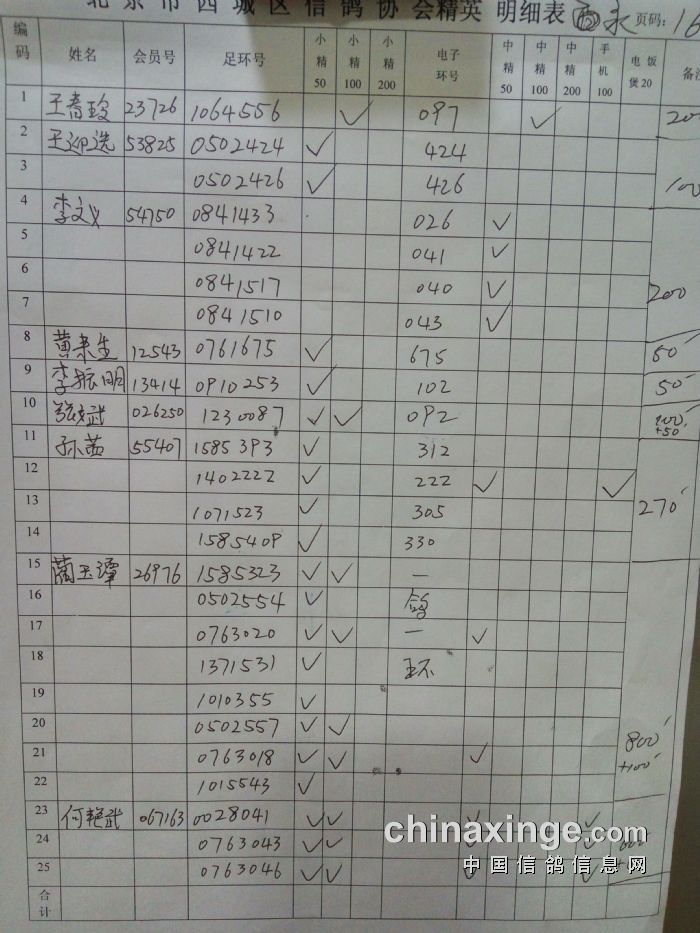 北京市西城区信鸽协会精英 明细表 页码: 16
编码 姓名 会员号 足环号 小精50 小精100 小精200 电子环号 中精50 中精100 中精200 手机100 电饭煲20 备注
1 23726 1064556 ✓ 097 ✓ 200
2 王迎选 53825 0502424 ✓ 424
3 0502426 ✓ 426 100
4 李文义 54750 0841433 026 ✓
5 0841422 041 ✓
6 0841517 040 ✓ 200
7 0841510 043 ✓
8 12543 0761675 ✓ 675 50
9 李振明 13414 0910253 ✓ 102 50
10 026250 1230087 ✓ ✓ 092 +50
11 孙茜 55407 1585393 ✓ 312
12 1402222 ✓ 222 ✓ ✓
13 1071523 ✓ 305 270
14 1585409 ✓ 330
15 蔺玉潭 26976 1585323 ✓ ✓ 一
16 0502554 ✓ 鸽
17 0763020 ✓ ✓ 一 ✓
18 1371531 ✓ 环
19 1010355 ✓
20 0502557 ✓ ✓ 800
21 0763018 ✓ ✓ ✓ +100
22 1015543 ✓
23 何艳武 067163 0028041 ✓ ✓ ✓ ✓
24 0763043 ✓ ✓ ✓ ✓
25 0763046 ✓ ✓ ✓ ✓
合计
chinaxinge.com
中国信鸽信息网